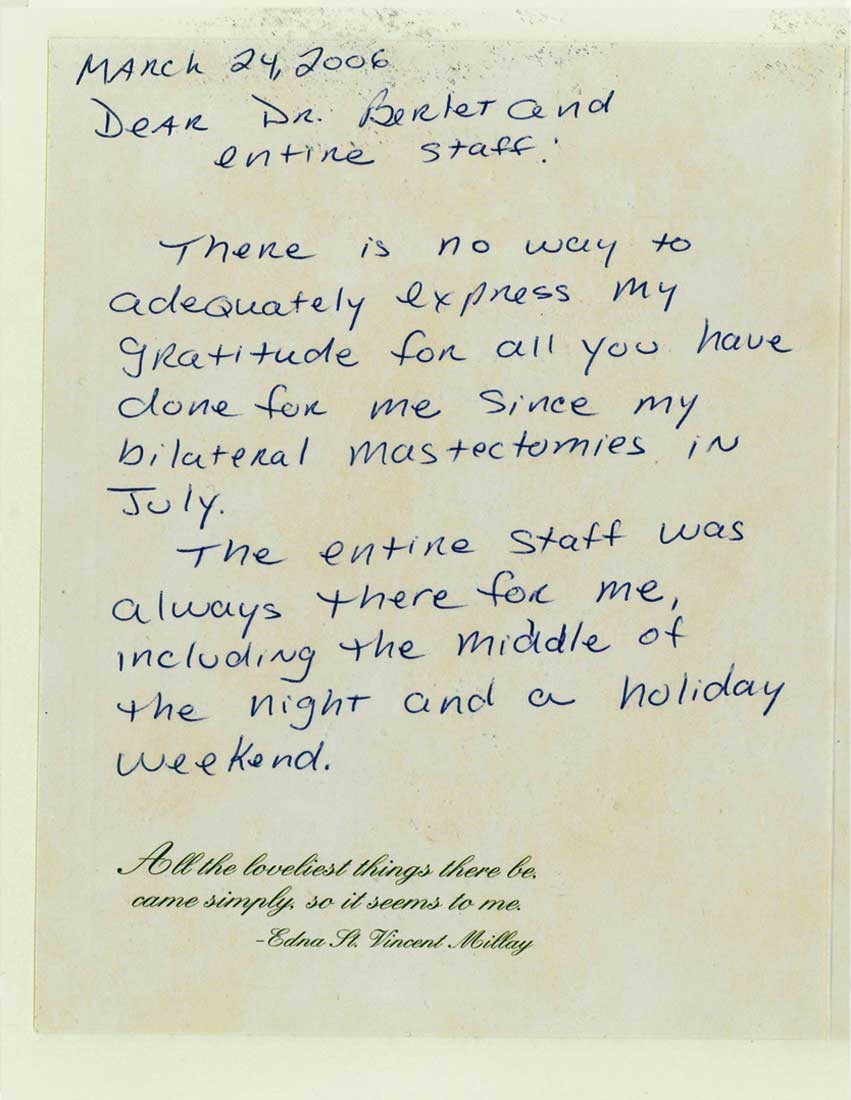 March 24, 2006
Dear Dr. Berlet and
entire staff:
There is no way to
adequately express my
gratitude for all you have
done for me since my
bilateral mastectomies in
July.
The entire staff was
always there for me,
including the middle of
the night and a holiday
weekend.
All the loveliest things there be,
came simply, so it seems to me.
-Edna St. Vincent Millay